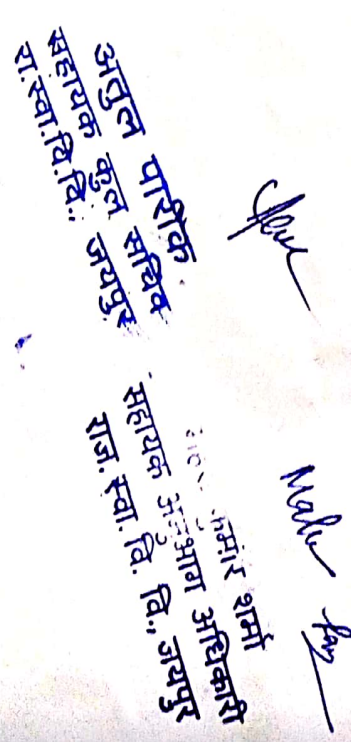 अतुल पारीक
सहायक कुल सचिव
रा.स्वा.वि.वि., जयपुर
कुमार शर्मा
सहायक अनुभाग अधिकारी
राज. स्वा. वि. वि., जयपुर